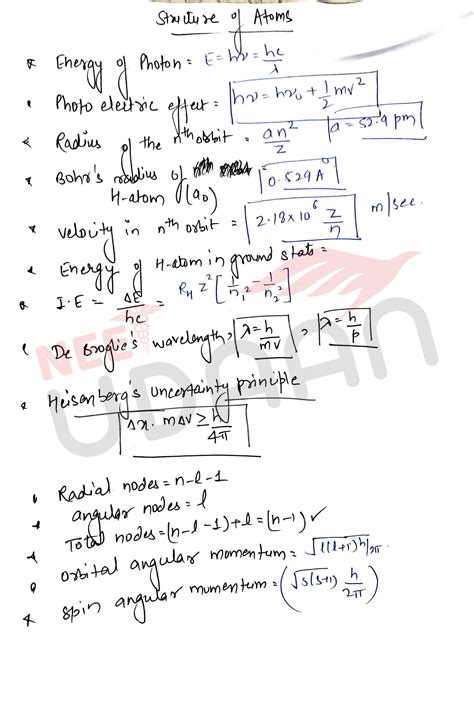 Structure of Atoms
Energy of Photon = E = hν = hc/λ
Photo electric effect = hν = hν₀ + 1/2 mv²
Radius of the nth orbit = an²/Z a = 52.9 pm
Bohr's radius of
H-atom (a₀) = 0.529 A°
Velocity in nth orbit = 2.18 x 10⁶ Z/n m/sec.
Energy of H-atom in ground state =
I.E = ΔE/hc = R_H Z² [1/n₁² - 1/n₂²]
De Broglie's wavelength, λ = h/mv, λ = h/p
Heisenberg's uncertainty principle
Δx. mΔv ≥ h/4π
Radial nodes = n-l-1
angular nodes = l
Total nodes = (n-l-1)+l = (n-1) ✓
orbital angular momentum = √l(l+1) h/2π
spin angular momentum = (√s(s+1) h/2π)
NEET PREP
UDAAN